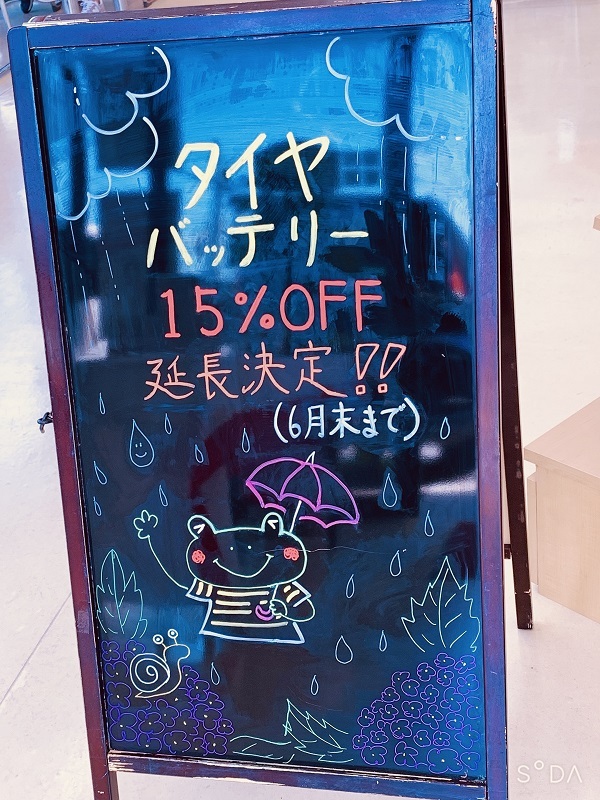 タイヤ
バッテリー
15%OFF
延長決定!!
(6月末まで)
SODA